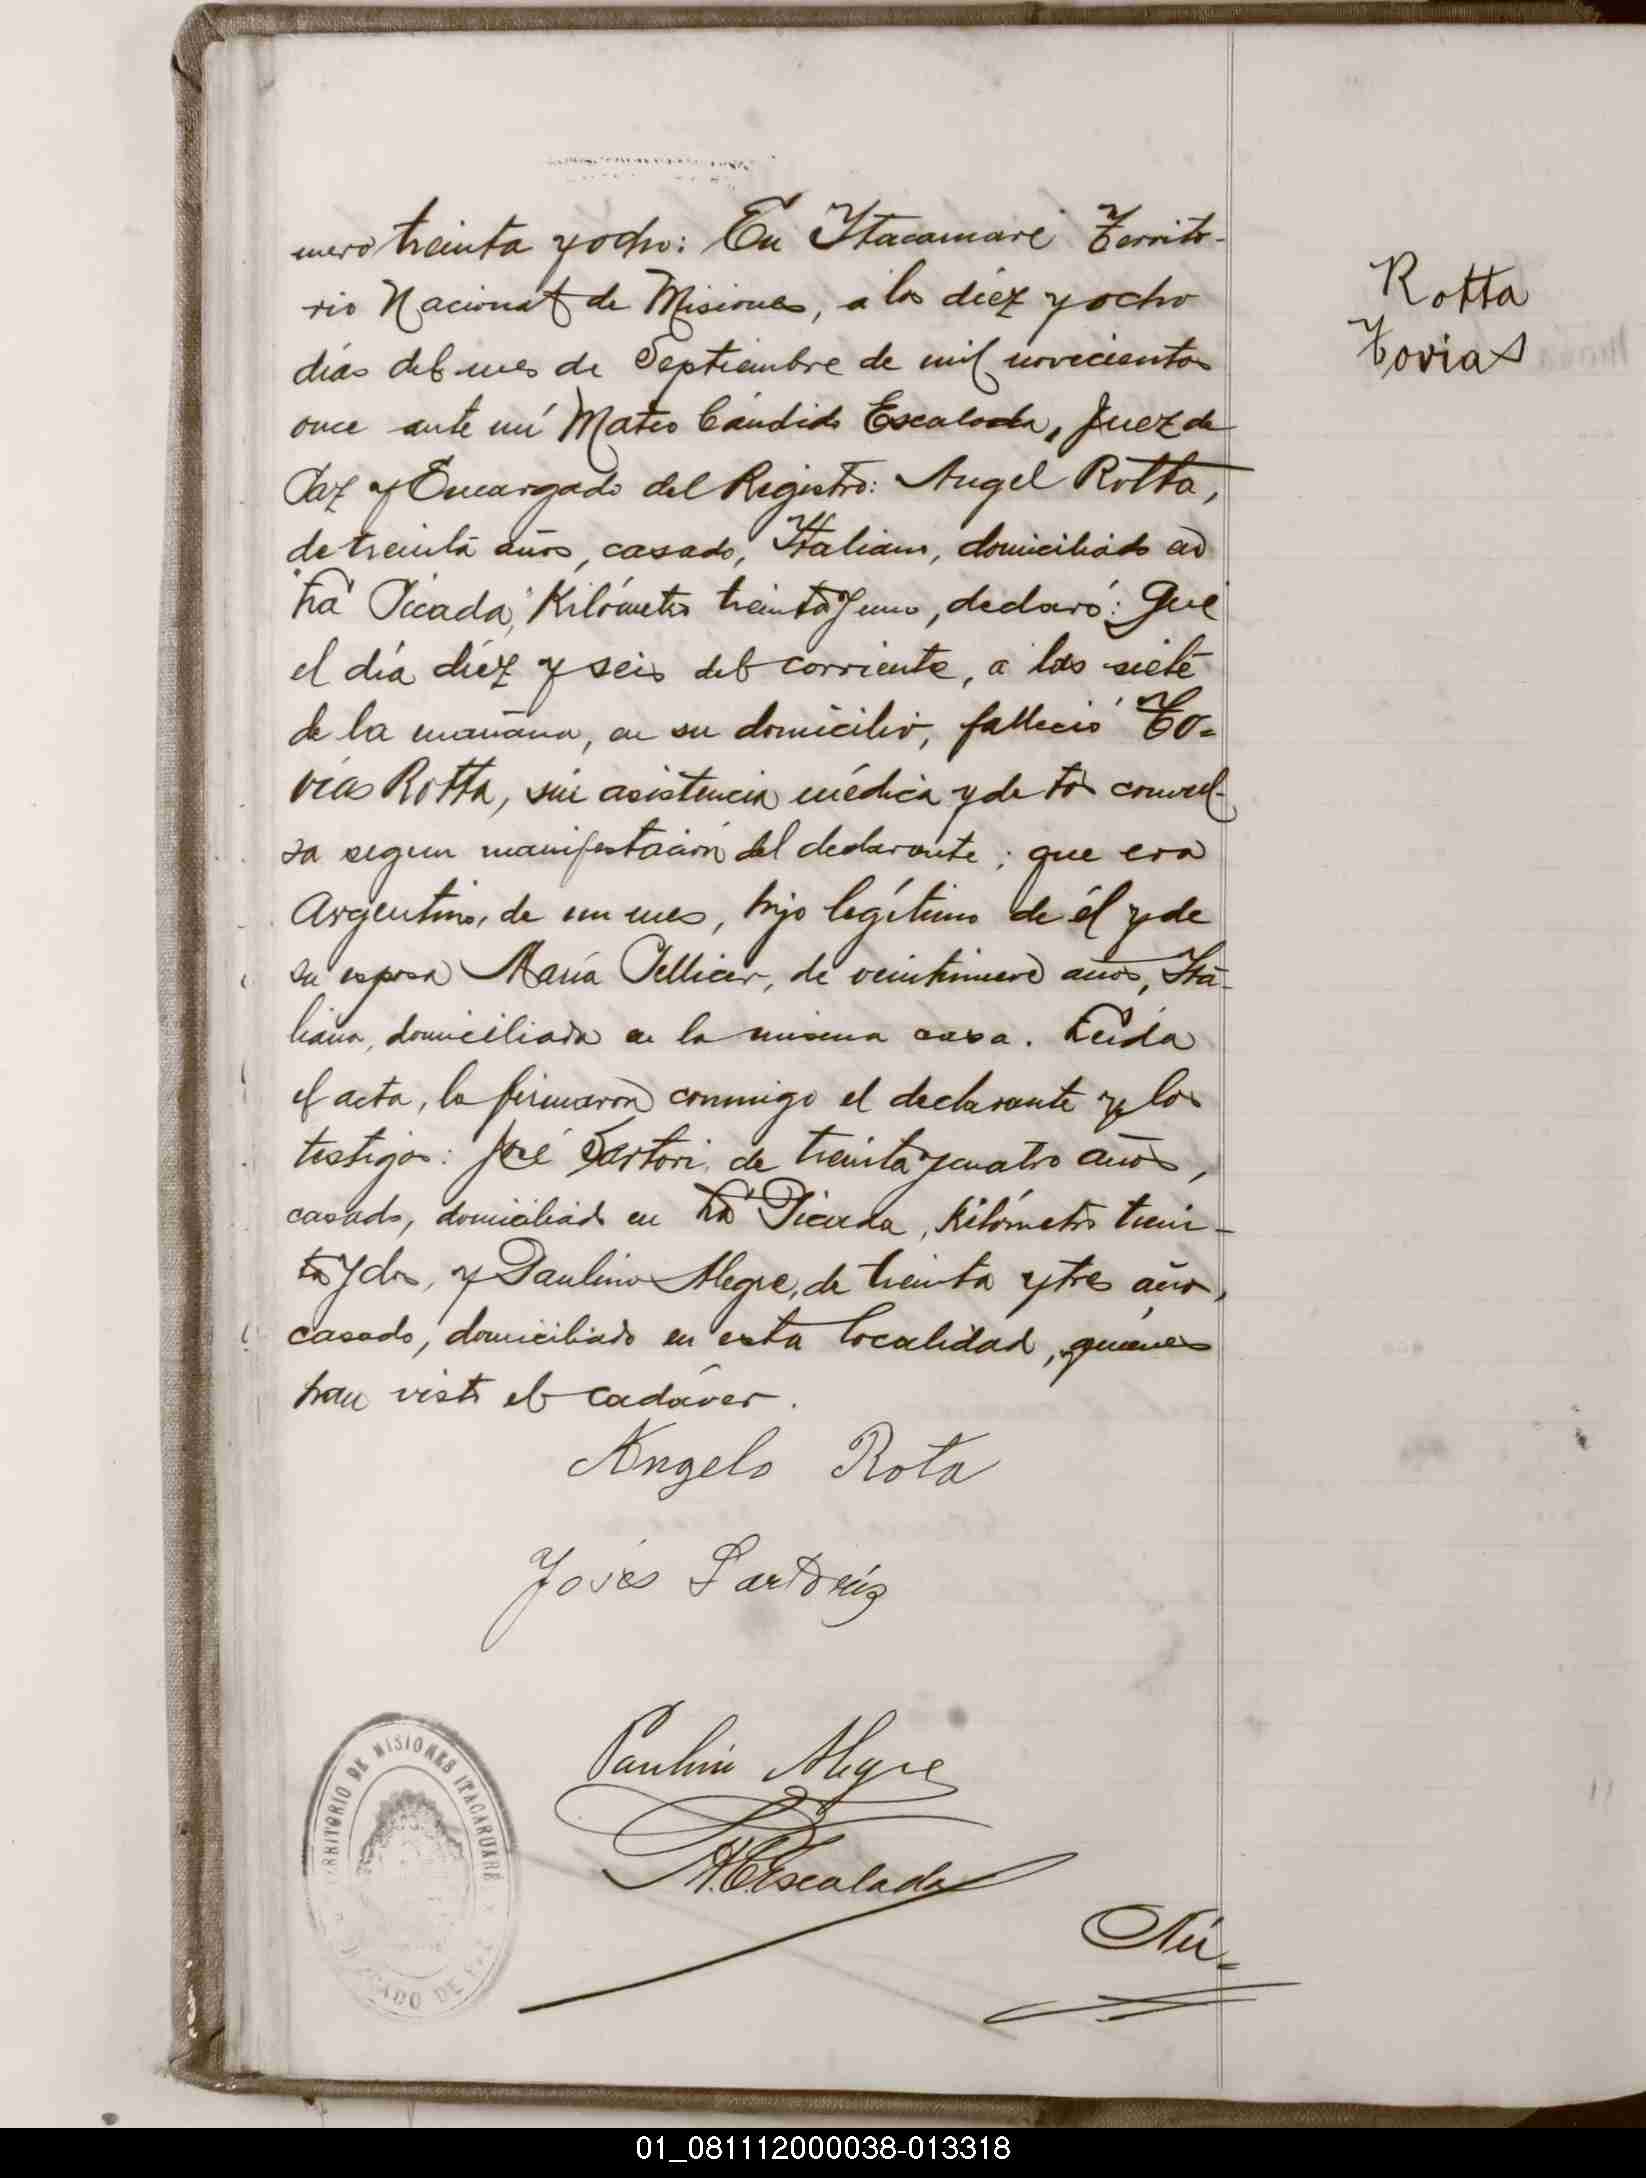 mero treinta y ocho: En Itacaruaré Territo-
rio Nacional de Misiones, a los diéz y ocho
días del mes de Septiembre de mil novecientos
once ante mí Mateo Cándido Escalada, Juez de
Paz y Encargado del Registro: Angel Rotta,
de treinta años, casado, Italiano, domiciliado en
"La Picada", Kilómetro treinta y uno, declaró: Que
el día diéz y seis del corriente, a las siete
de la mañana, en su domicilio, falleció To-
vias Rotta, sin asistencia médica y de tos convul-
sa segun manifestación del declarante; que era
Argentino, de un mes, hijo legítimo de él y de
su esposa María Pellicer, de veintinueve años, Ita-
liana, domiciliada en la misma casa. Leída
el acta, la firmaron conmigo el declarante y los
testigos: José Sartori, de treinta y cuatro años,
casado, domiciliado en "La Picada", Kilómetro trein-
ta y dos, y Paulino Alegre, de treinta y tres años,
casado, domiciliado en esta localidad, quienes
han visto el cadáver.
Rotta
Tovias
Angelo Rota
Josés
Paulino Alegre
M.C. Escalada
Nú-
TERRITORIO DE MISIONES ITACARUARÉ
JUZGADO DE PAZ
01_081112000038-013318